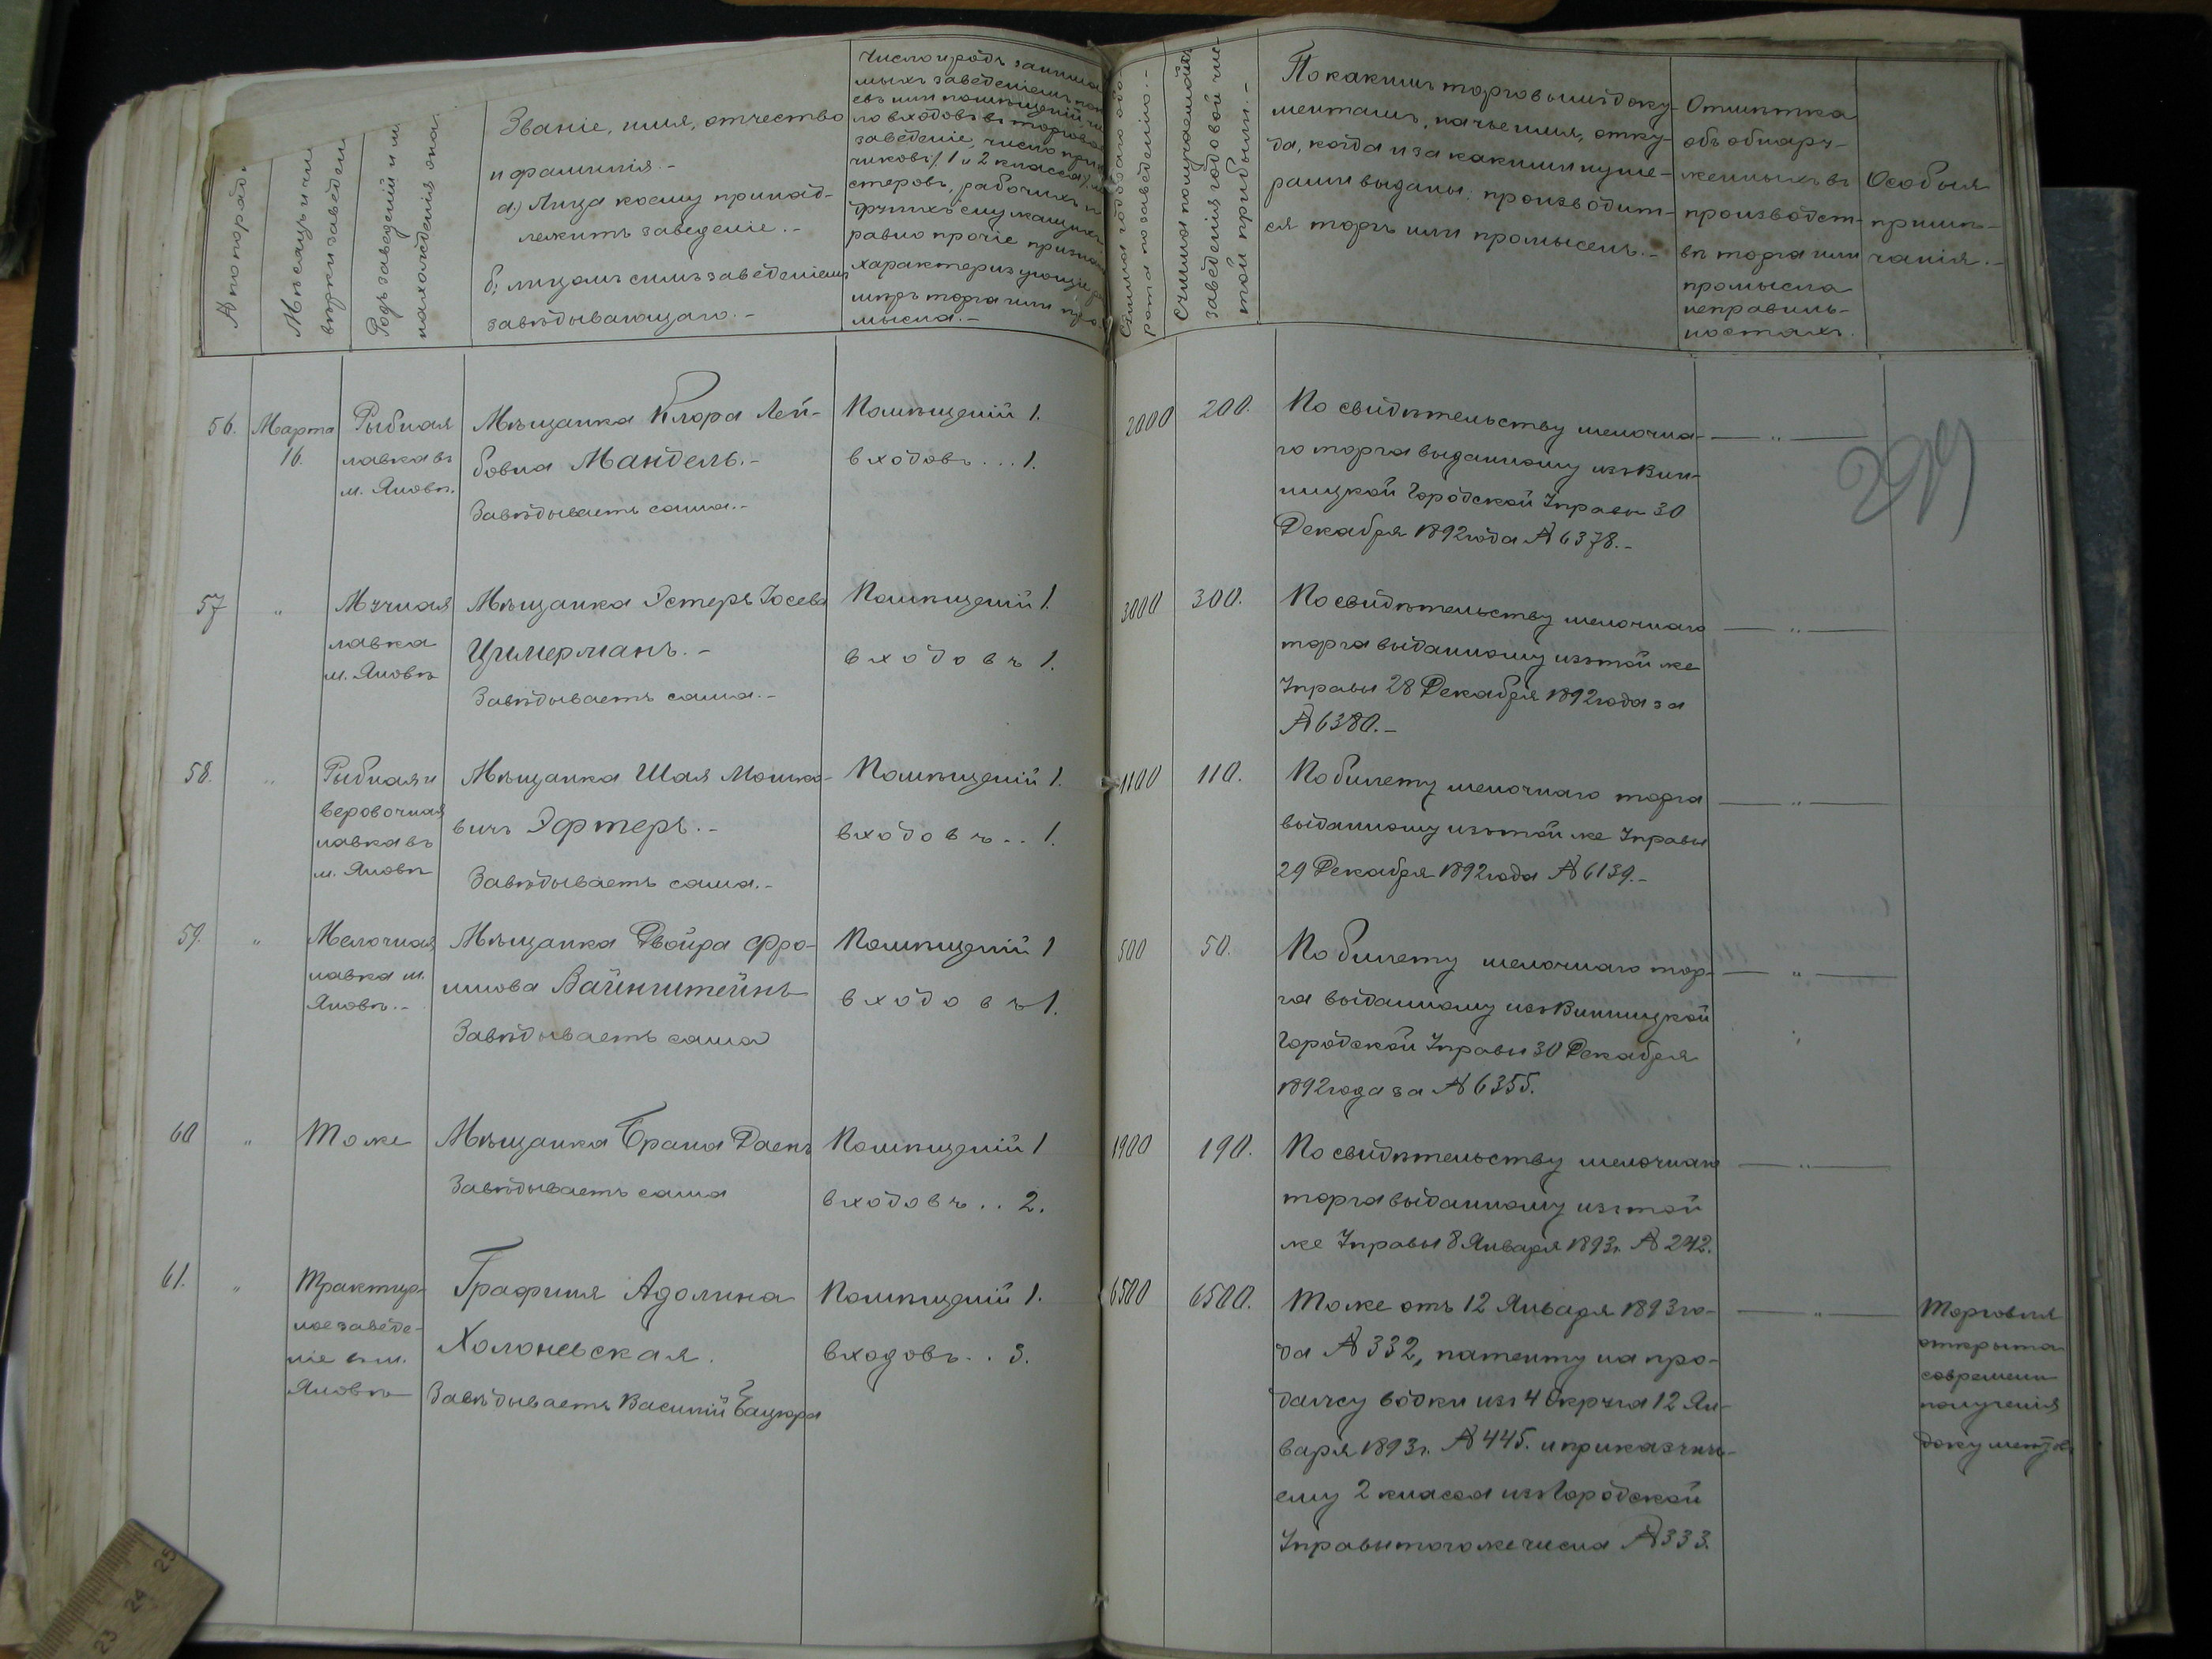 № по порядк
Мѣсяцъ и чи
вѣрки заведен
Родъ заведеній и м
нахожденія она.
Званіе, имя, отчество
и фамилія.-
а) Лица коему принад-
лежитъ заведеніе.-
б; лицомъ симъ заведеніемъ
завѣдывающаго.-
Число и родъ занима
мыхъ заведеніемъ
евъ или помѣщеній
ло входовъ въ торгов
заведеніе, число при
чиковъ 1 и 2 класса
стеровъ, рабочихъ и
другихъ служащихъ
равно прочіе призна
характеризующіе
мѣръ торга или про
мысла.-
Сумма годоваго обо-
рота по заведенію.-
Сумма получаемой
заведенія годовой чис-
той прибыли.-
По какимъ торговымъ доку-
ментамъ, на чье имя, отку-
да, когда и за какими нуме-
рами выданы: производит-
ся торгъ или промыселъ.-
Отмѣтка
объ обнару-
женныхъ въ
производст-
вѣ торга или
промысла
неправиль-
ностяхъ.
Особыя
примѣ-
чанія.-
299
56. Марта 16.
Рыбная
лавка въ
м. Яновѣ.
Мѣщанка Клара Лей-
бовна Мандель.-
Завѣдываетъ сама.-
Помѣщеній 1.
входовъ...1.
2000 200.
По свидѣтельству мелочна-
го торга выданному изъ Вин-
ницкой Городской Управы 30
Декабря 1892 года № 6378.-
— „ —
57 „
Мучная
лавка
м. Яновѣ
Мѣщанка Эстеръ Іосева
Цимерманъ.-
Завѣдываетъ сама.-
Помѣщеній 1.
входовъ 1.
3000 300.
По свидѣтельству мелочнаго
торга выданному изъ той же
Управы 28 Декабря 1892 года за
№ 6380.-
— „ —
58. „
Рыбная и
веровочная
лавка въ
м. Яновѣ
Мѣщанка Шая Мошко-
вичъ Эфтеръ.-
Завѣдываетъ сама.-
Помѣщеній 1.
входовъ.. 1.
1100 110.
По билету мелочнаго торга
выданному изъ той же Управы
29 Декабря 1892 года № 6139.-
— „ —
59. „
Мелочная
лавка м.
Яновѣ.-
Мѣщанка Двойра Фро-
имова Вайнштейнъ
Завѣдываетъ сама
Помѣщеній 1
входовъ 1.
500 50.
По билету мелочнаго тор-
га выданному изъ Винницкой
Городской Управы 30 Декабря
1892 года за № 6355.
— „ —
60 „
Тоже
Мѣщанка Брана Даенъ
Завѣдываетъ сама
Помѣщеній 1
входовъ.. 2.
1900 190.
По свидѣтельству мелочнаго
торга выданному изъ той
же Управы 8 Января 1893 г. № 242.
— „ —
61. „
Трактир-
ное заведе-
ніе въ м.
Яновѣ
Графиня Адолина
Холоневская.
Завѣдываетъ Василій Бацюра
Помѣщеній 1.
входовъ.. 3.
6500 6500.
Тоже отъ 12 Января 1893 го-
да № 332, патенту на про-
дажу водки изъ 4 Округа 12 Ян-
варя 1893 г. № 445. и приказчичь-
ему 2 класса изъ Городской
Управы того же числа № 333.
— „ —
Торговля
открыта
современи
полученія
документов
23 24 25